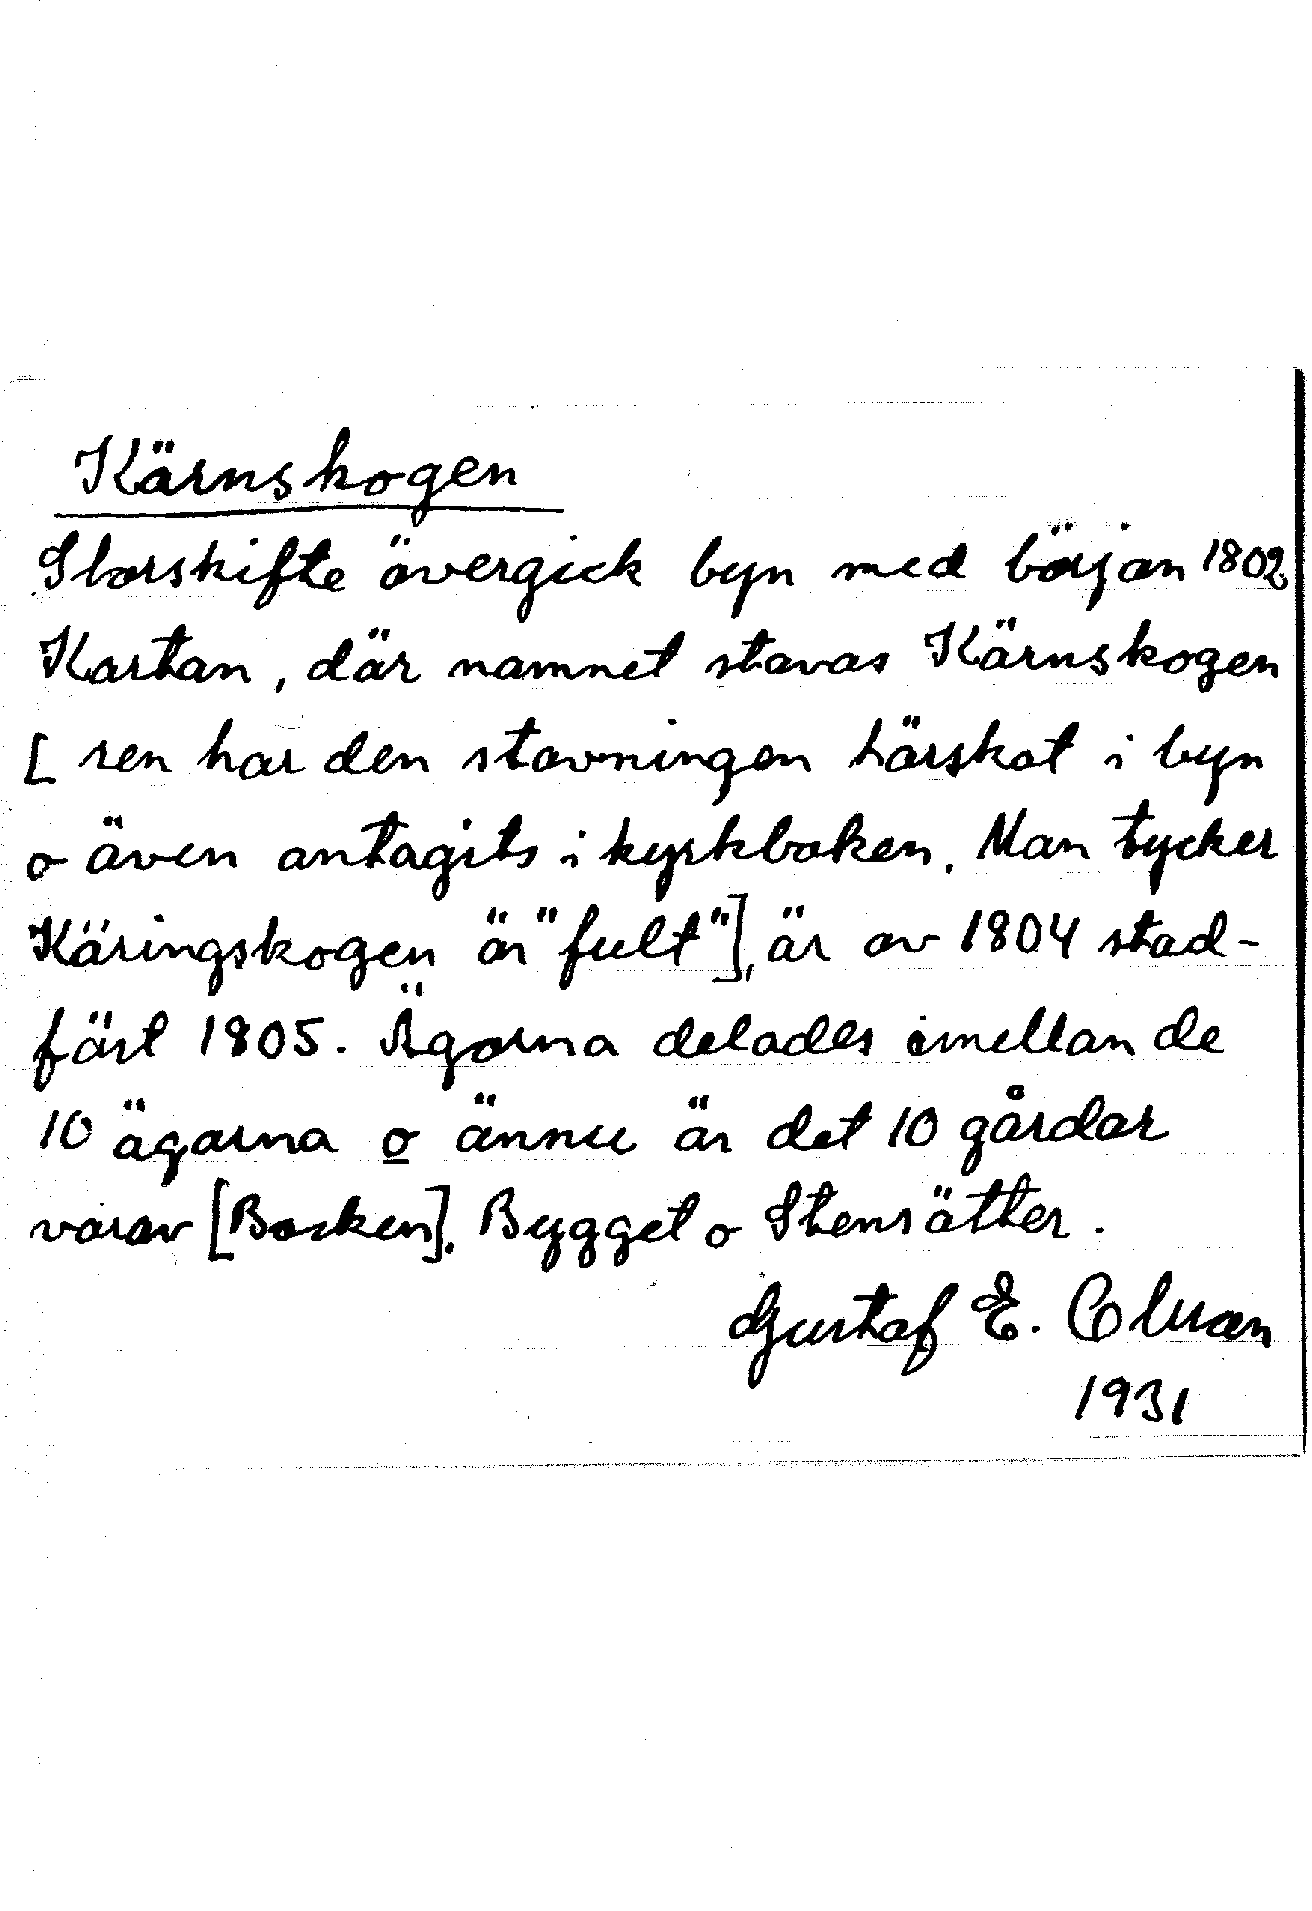 Kärnskogen
Storskifte övergick byn med början 1802
Kartan, där namnet stavas Kärnskogen
[ ren har den stavningen härskat i byn
o även antagits i kyrkboken. Man tycker
Käringskogen är "fult"], är av 1804 stad-
fäst 1805. Ägorna delades imellan de
10 ägarna o ännu är det 10 gårdar
varav [Backen]. Bygget o Stensätter.
Gustaf E.
1931